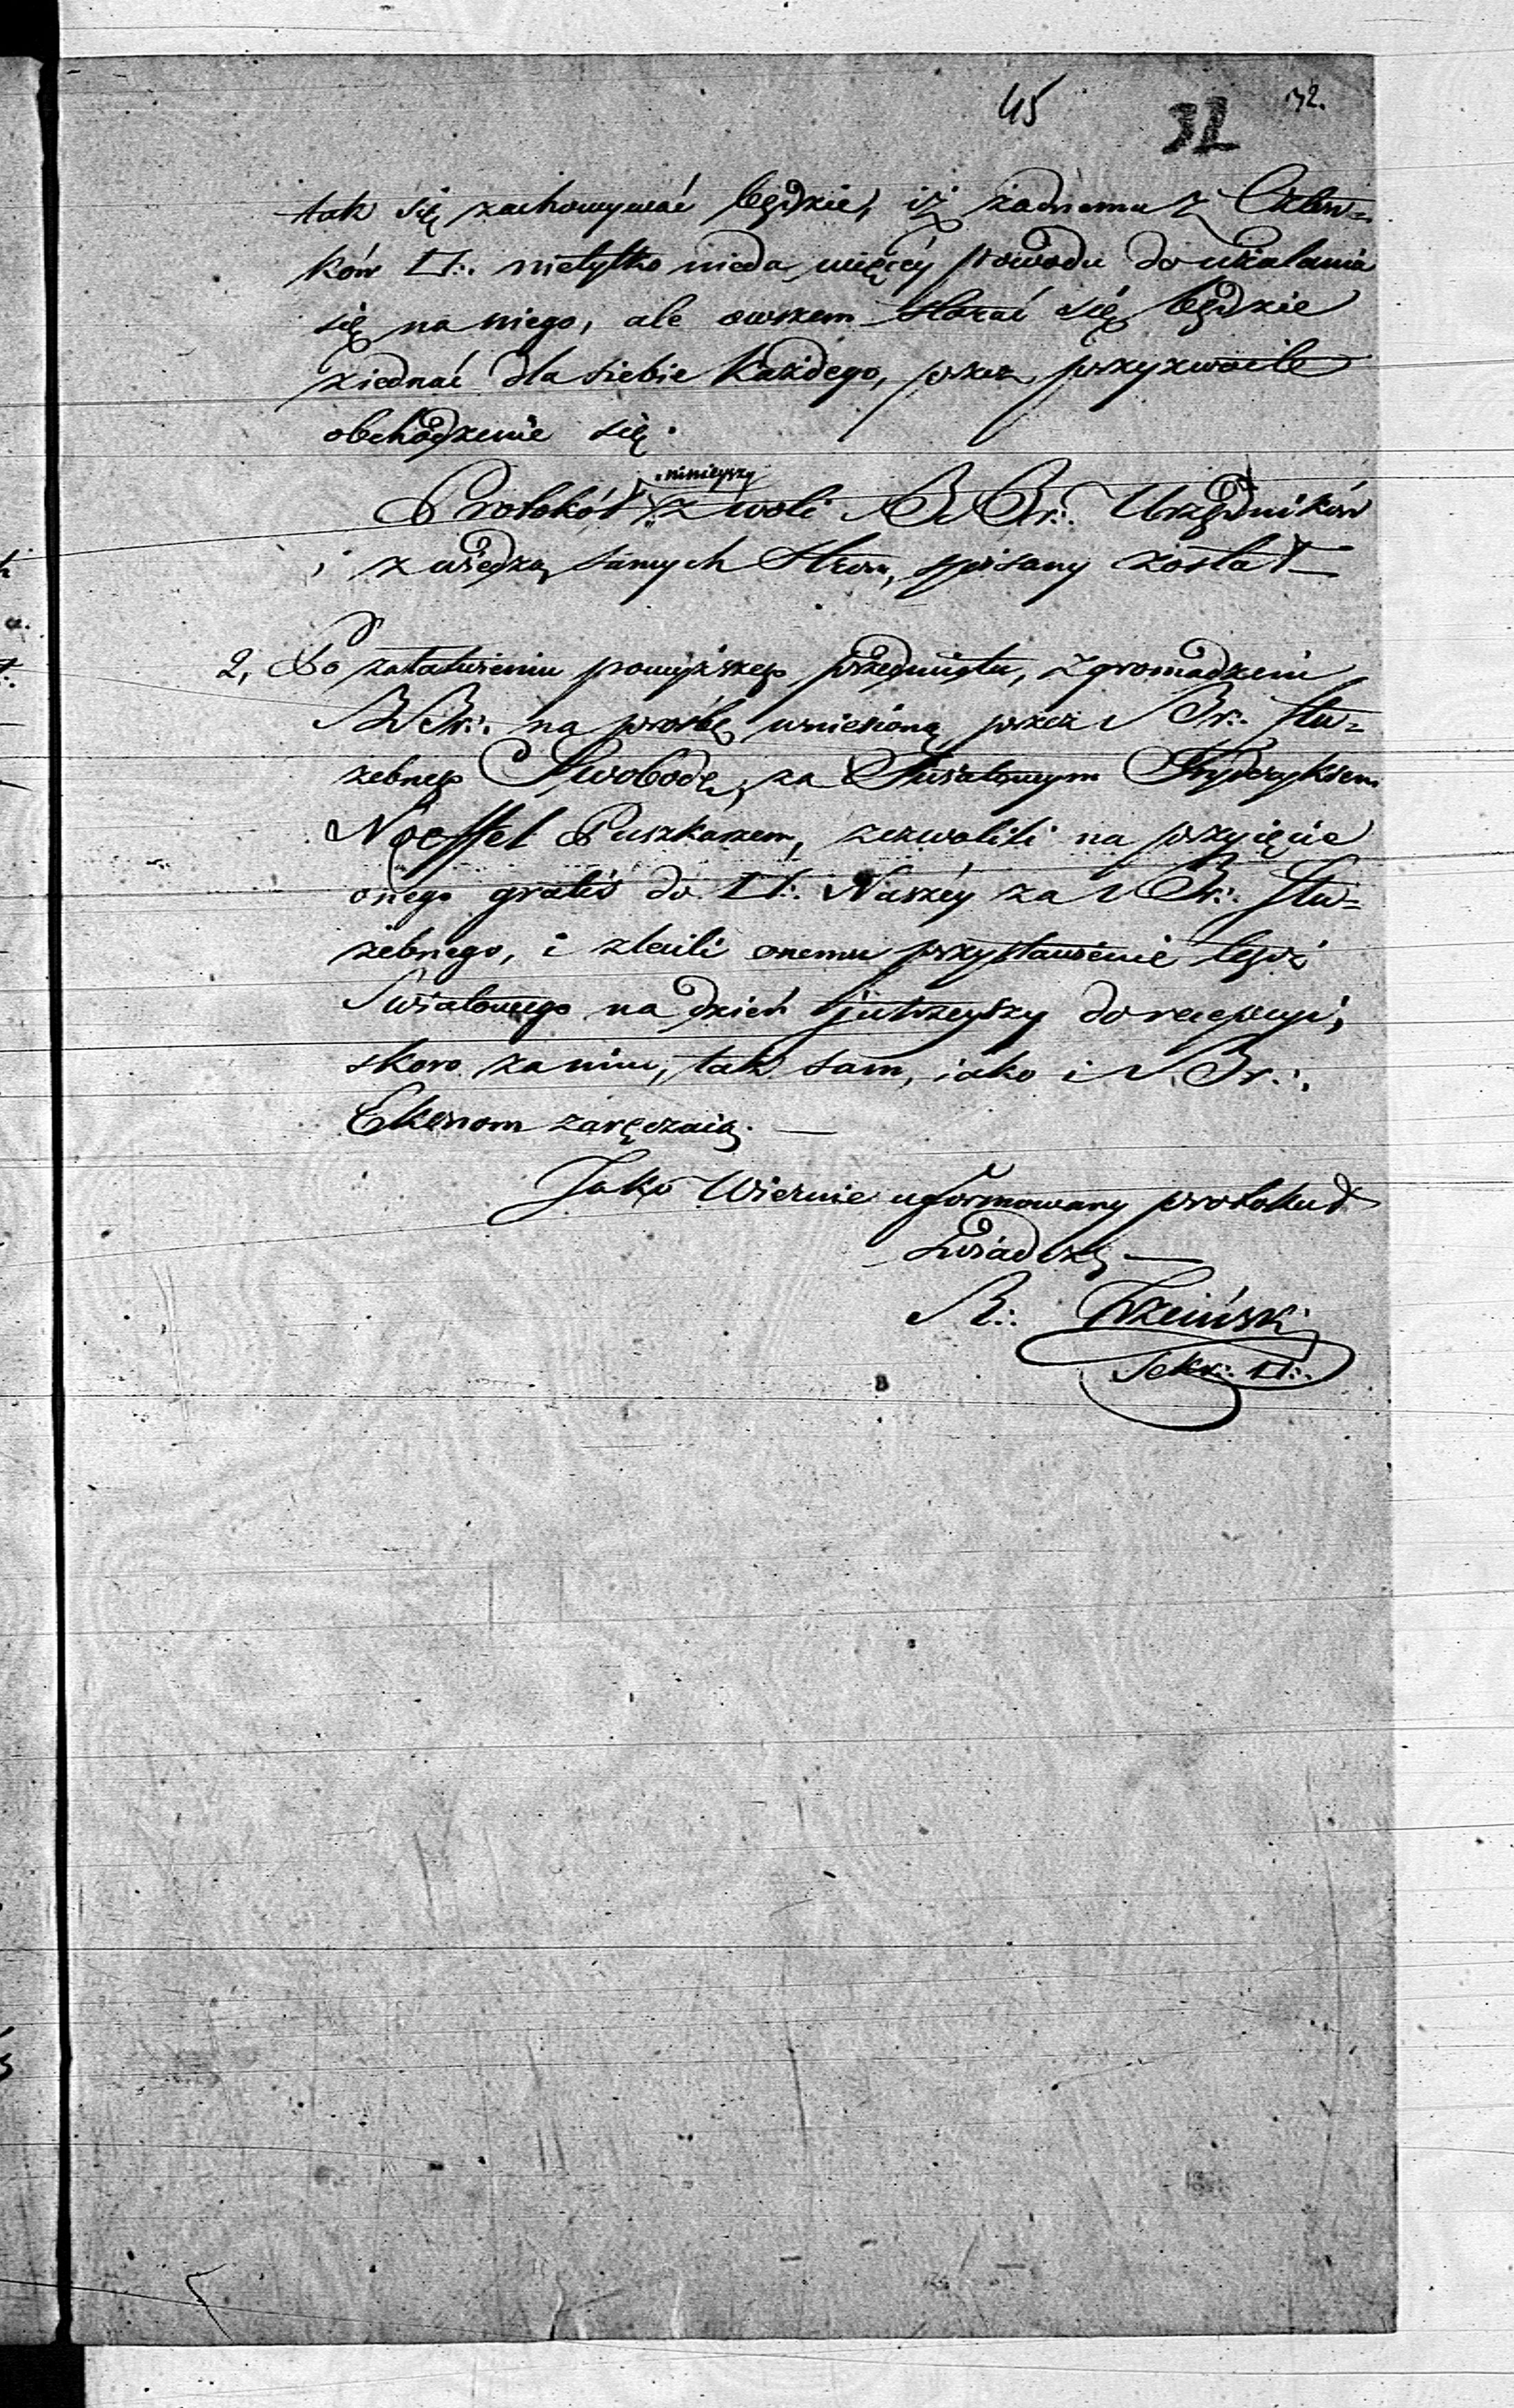 45 32 32.
tak się zachowywać będzie, iż żadnemu z Człon=
ków □. nietylko nieda więcéy powodu do użalania
się na niego, ale owszem starać się będzie
ziednać dla siebie Każdego, przez przyzwoite
obchodzenie się.
niniejszy
Protokół z woli BBr∴ Urzędników
i z wiedzą samych Stron, spisany został —
2, Po załatwieniu powyższego przedmiotu, Zgromadzeni
BBr∴ na prośbę wniesioną przez Br∴ Słu=
żebnego Swobodę, za Swiatowym Frydrykiem
Noeffel Puszkarzem, zezwolili na przyięcie
onego gratis do □. Naszéy za Br∴ Słu=
żebnego, i zlecili onemu przystawienie tegoż
Swiatowego na dzień jutrzeyszy do recepcyi,
skoro za nim, tak sam, iako i Br∴
Ekonom zaręczaią. —
Jako Wiernie uformowany protokuł
Swiadczę —
Sekr∴ □∴